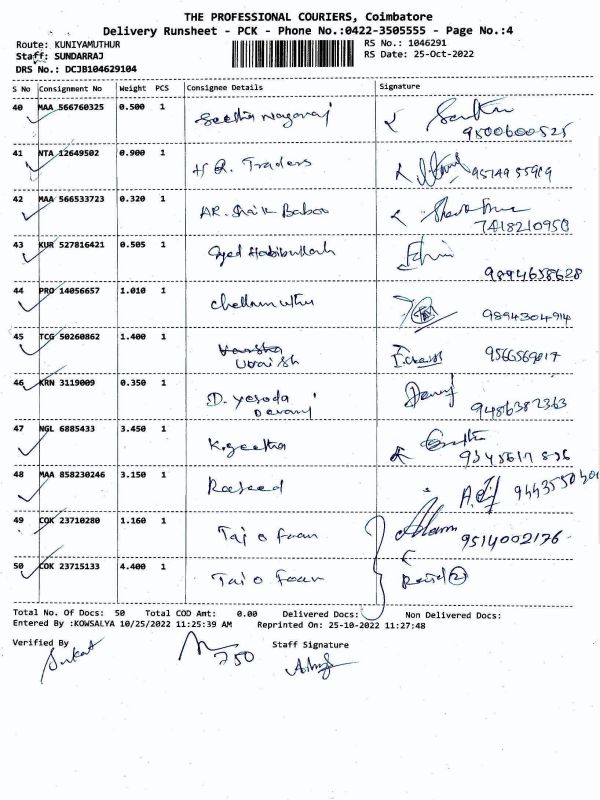 THE PROFESSIONAL COURIERS, Coimbatore
Delivery Runsheet - PCK - Phone No.:0422-3505555 - Page No.:4
Route: KUNIYAMUTHUR
RS No.: 1046291
Staff: SUNDARRAJ
RS Date: 25-Oct-2022
DRS No.: DCJB104629104
S No Consignment No Weight PCS Consignee Details Signature
40 MAA 566760325 0.500 1 Seetha Nagaraj
9500600525
41 NTA 12649502 0.900 1 H R. Traders
42 MAA 566533723 0.320 1 AR. Shaik Babao
7418210950
43 KUR 527816421 0.505 1 Syed Habibullah
9894658628
44 PRO 14056657 1.010 1 chellamuthu
9894304914
45 TCG 50260862 1.400 1 Varsha
46 KRN 3119009 0.350 1 D. yesoda
Devaraj
9486382363
47 NGL 6885433 3.450 1 K.geetha
48 MAA 858230246 3.150 1 Rasheed
49 COK 23710280 1.160 1 Taj o Faan
9514002176
50 COK 23715133 4.400 1 Taj o Faan
Total No. Of Docs: 50 Total COD Amt: 0.00 Delivered Docs: Non Delivered Docs:
Entered By :KOWSALYA 10/25/2022 11:25:39 AM Reprinted On: 25-10-2022 11:27:48
Verified By Staff Signature
750